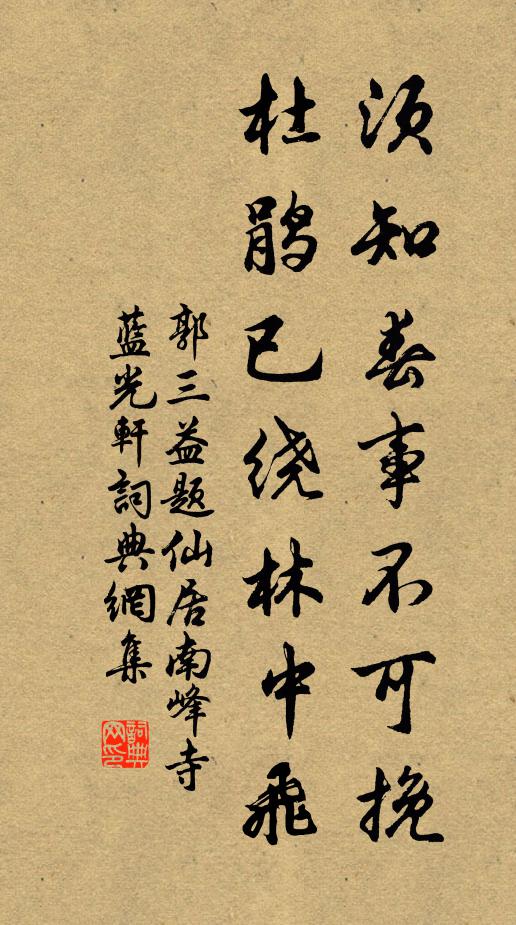 须知春事不可挽
杜鹃已绕林中飛
郭三益题仙居南峰寺
蓝光軒詞典網集
詞典网印